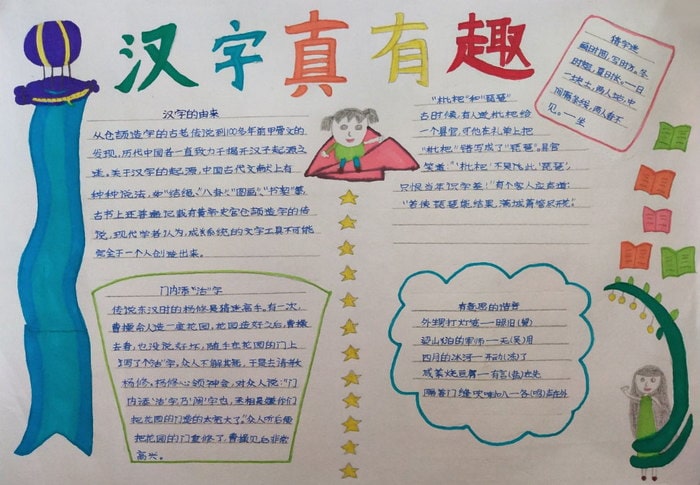 汉字真有趣
汉字的由来
从仓颉造字的古老传说到100多年前甲骨文的
发现，历代中国者一直致力于揭开汉字起源之
迷。关于汉字的起源，中国古代文献上有
种种说法，如“结绳”、“八卦”、“图画”、“书契”等，
古书上还普遍记载有黄帝史官仓颉造字的传
说，现代学者认为，成系统的文字工具不可能
完全于一个人创造出来。
“枇杷”和“琵琶”
古时候，有人送枇杷给
一个县官，可他在礼单上把
“枇杷”错写成了“琵琶”。县官
笑道：“枇杷”不是此“琵琶”，
只恨当年识字差！”有个客人应声道：
“若使琵琶能结果，满城箫管尽开花。”
猜字迷
画时圆，写时方。冬
时短，夏时长。一日
二块土，两人坐：
一坐
门内添“活”字
传说东汉时的杨修是猜迷高手。有一次，
曹操命人造一座花园，花园造好之后，曹操
去看，也没说好坏，随手在花园的门上
写了个“活”字，众人不解其意，于是去请教
杨修，杨修心领神会，对众人说：“门
内添‘活’字乃‘阔’字也，丞相是嫌你们
把花园的门造的太宽大了。”众人听后便
把花园的门重修了，曹操见后非常
高兴。
有意思的谐音
外甥打灯笼一照旧(舅)
梁山泊的军师一无(吴)用
四月的冰河一开动(冻)了
咸菜烧豆腐一有言(盐)在先
隔着门缝吹喇叭一名(鸣)声在外